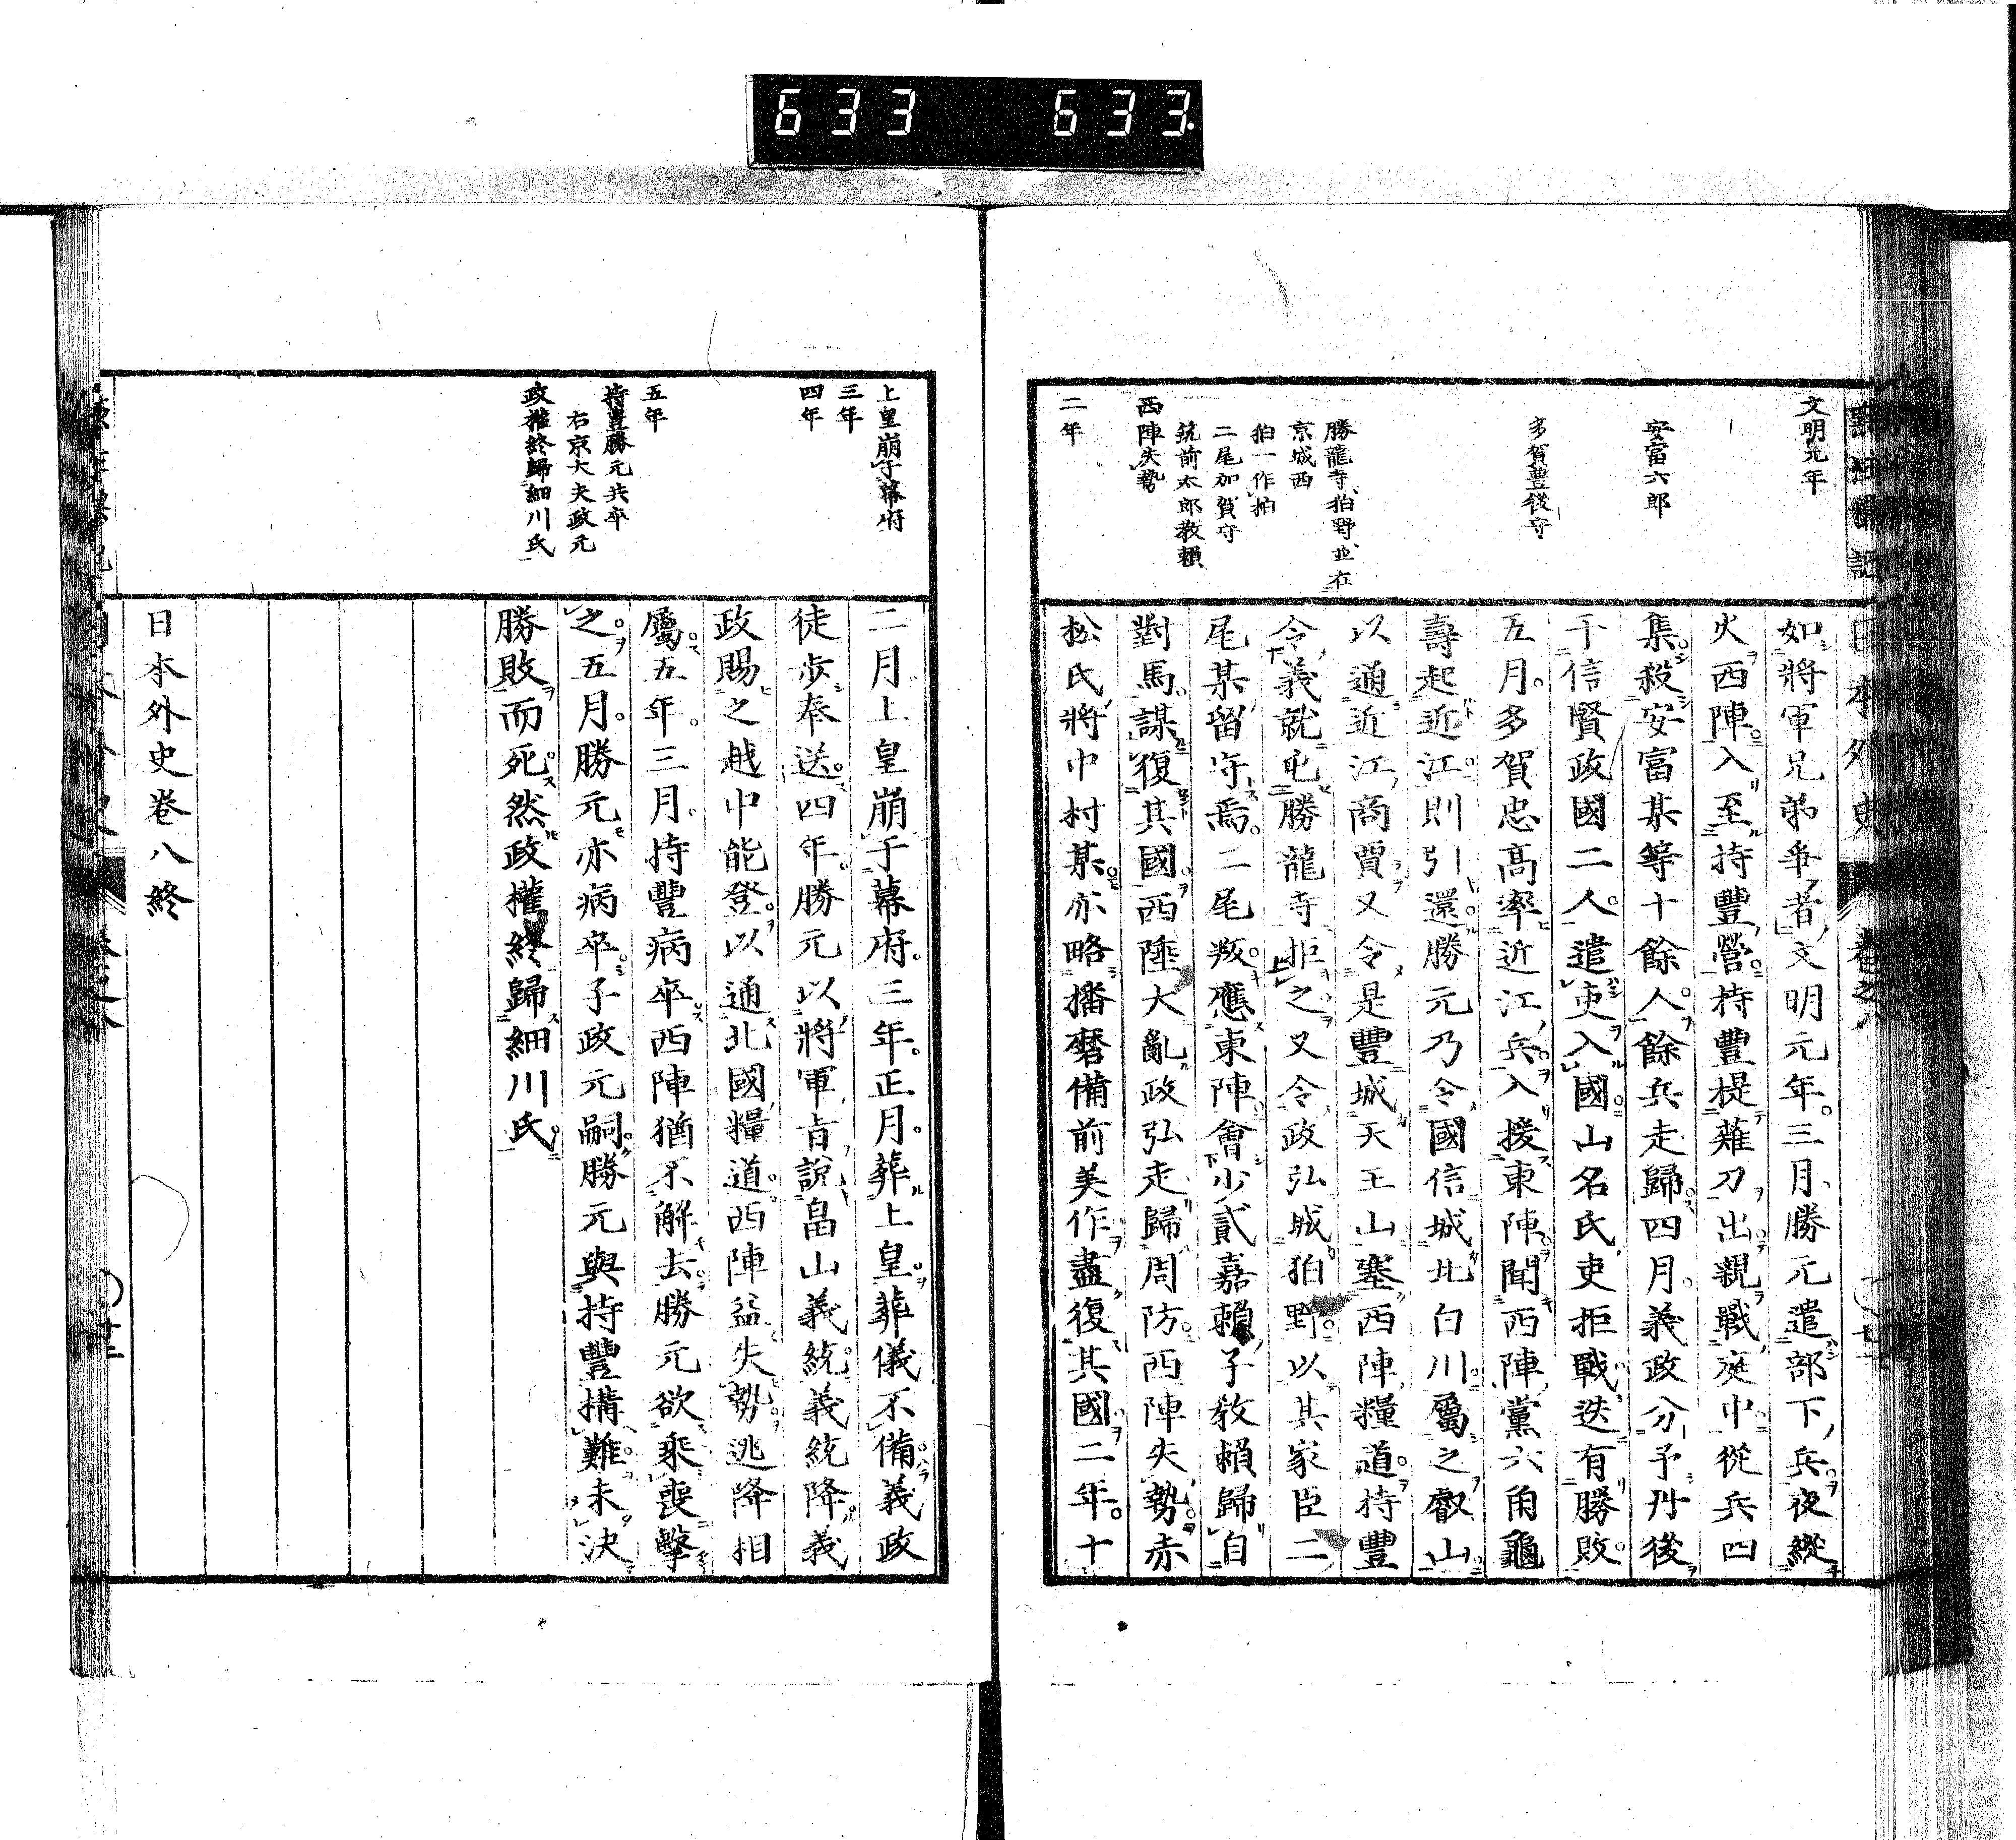 633 633
文明元年
安富六郎
多賀豊後守
勝龍寺狛野並在
京城西
狛一作拍
二尾加賀守
筑前太郎教賴
西陣失勢
二年
如將軍兄弟爭者文明元年三月勝元遣部下兵夜縱
火西陣入至持豐營持豐提薙刀出親戰庭中從兵四
集殺安富某等十餘人餘兵走歸四月義政分予丹後
于信賢政國二人遣吏入國山名氏吏拒戰迭有勝敗
五月多賀忠高率近江兵入援東陣聞西陣黨六角龜
壽起近江則引還勝元乃令國信城北白川屬之叡山
以通近江商賈又令是豐城天王山塞西陣糧道持豐
令義就屯勝龍寺拒之又令政弘城狛野以其家臣二
尾某留守焉二尾叛應東陣會少貳嘉賴子敎賴歸自
對馬謀復其國西陲大亂政弘走歸周防西陣失勢赤
松氏將中村某亦略播磨備前美作盡復其國二年十
上皇崩于幕府
三年
四年
五年
持豊勝元共卒
右京大夫政元
政權終歸細川氏
二月上皇崩于幕府三年正月葬上皇葬儀不備義政
徒步奉送四年勝元以將軍旨說畠山義統義統降義
政賜之越中能登以通北國糧道西陣益失勢逃降相
屬五年三月持豐病卒西陣猶不解去勝元欲乘喪擊
之五月勝元亦病卒子政元嗣勝元與持豐構難未決
勝敗而死然政權終歸細川氏
日本外史卷八終